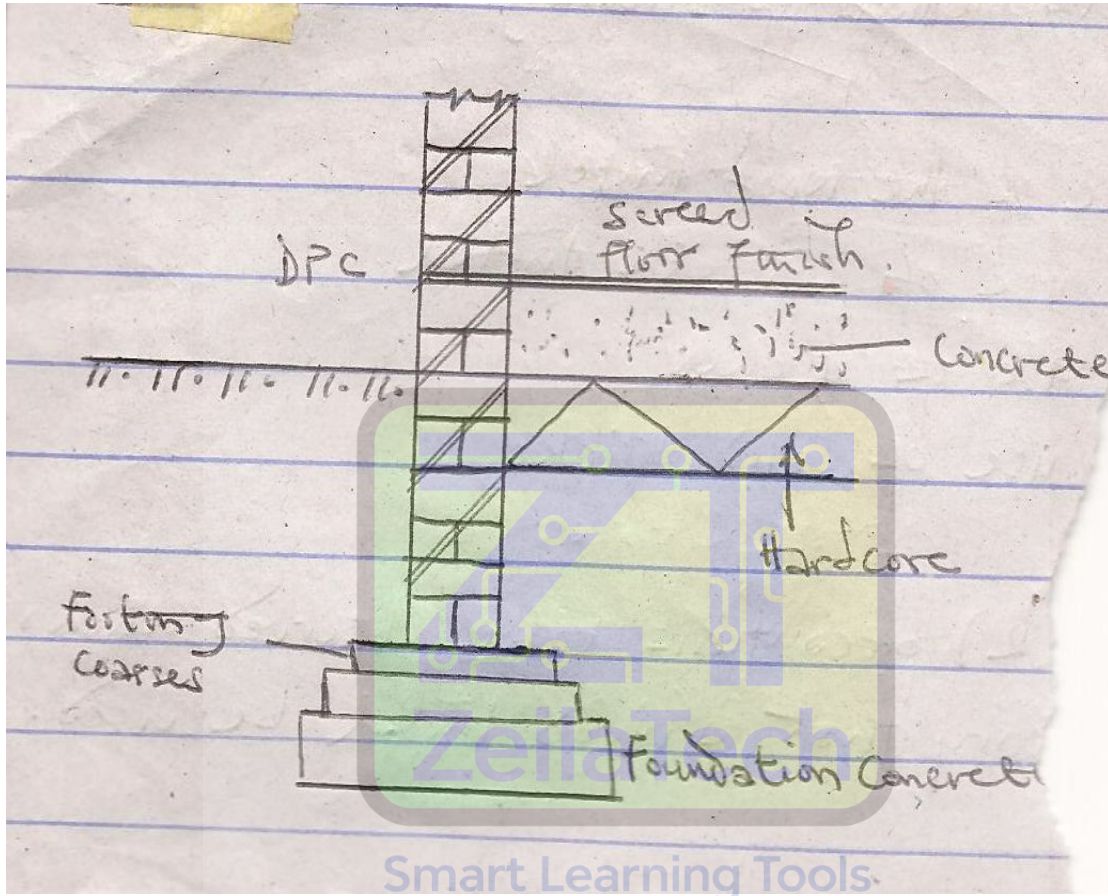 screed in
floor finish.
DPC
Concrete
Hardcore
Footing
coarses
Foundation Concrete
ZT
ZeilaTech
Smart Learning Tools